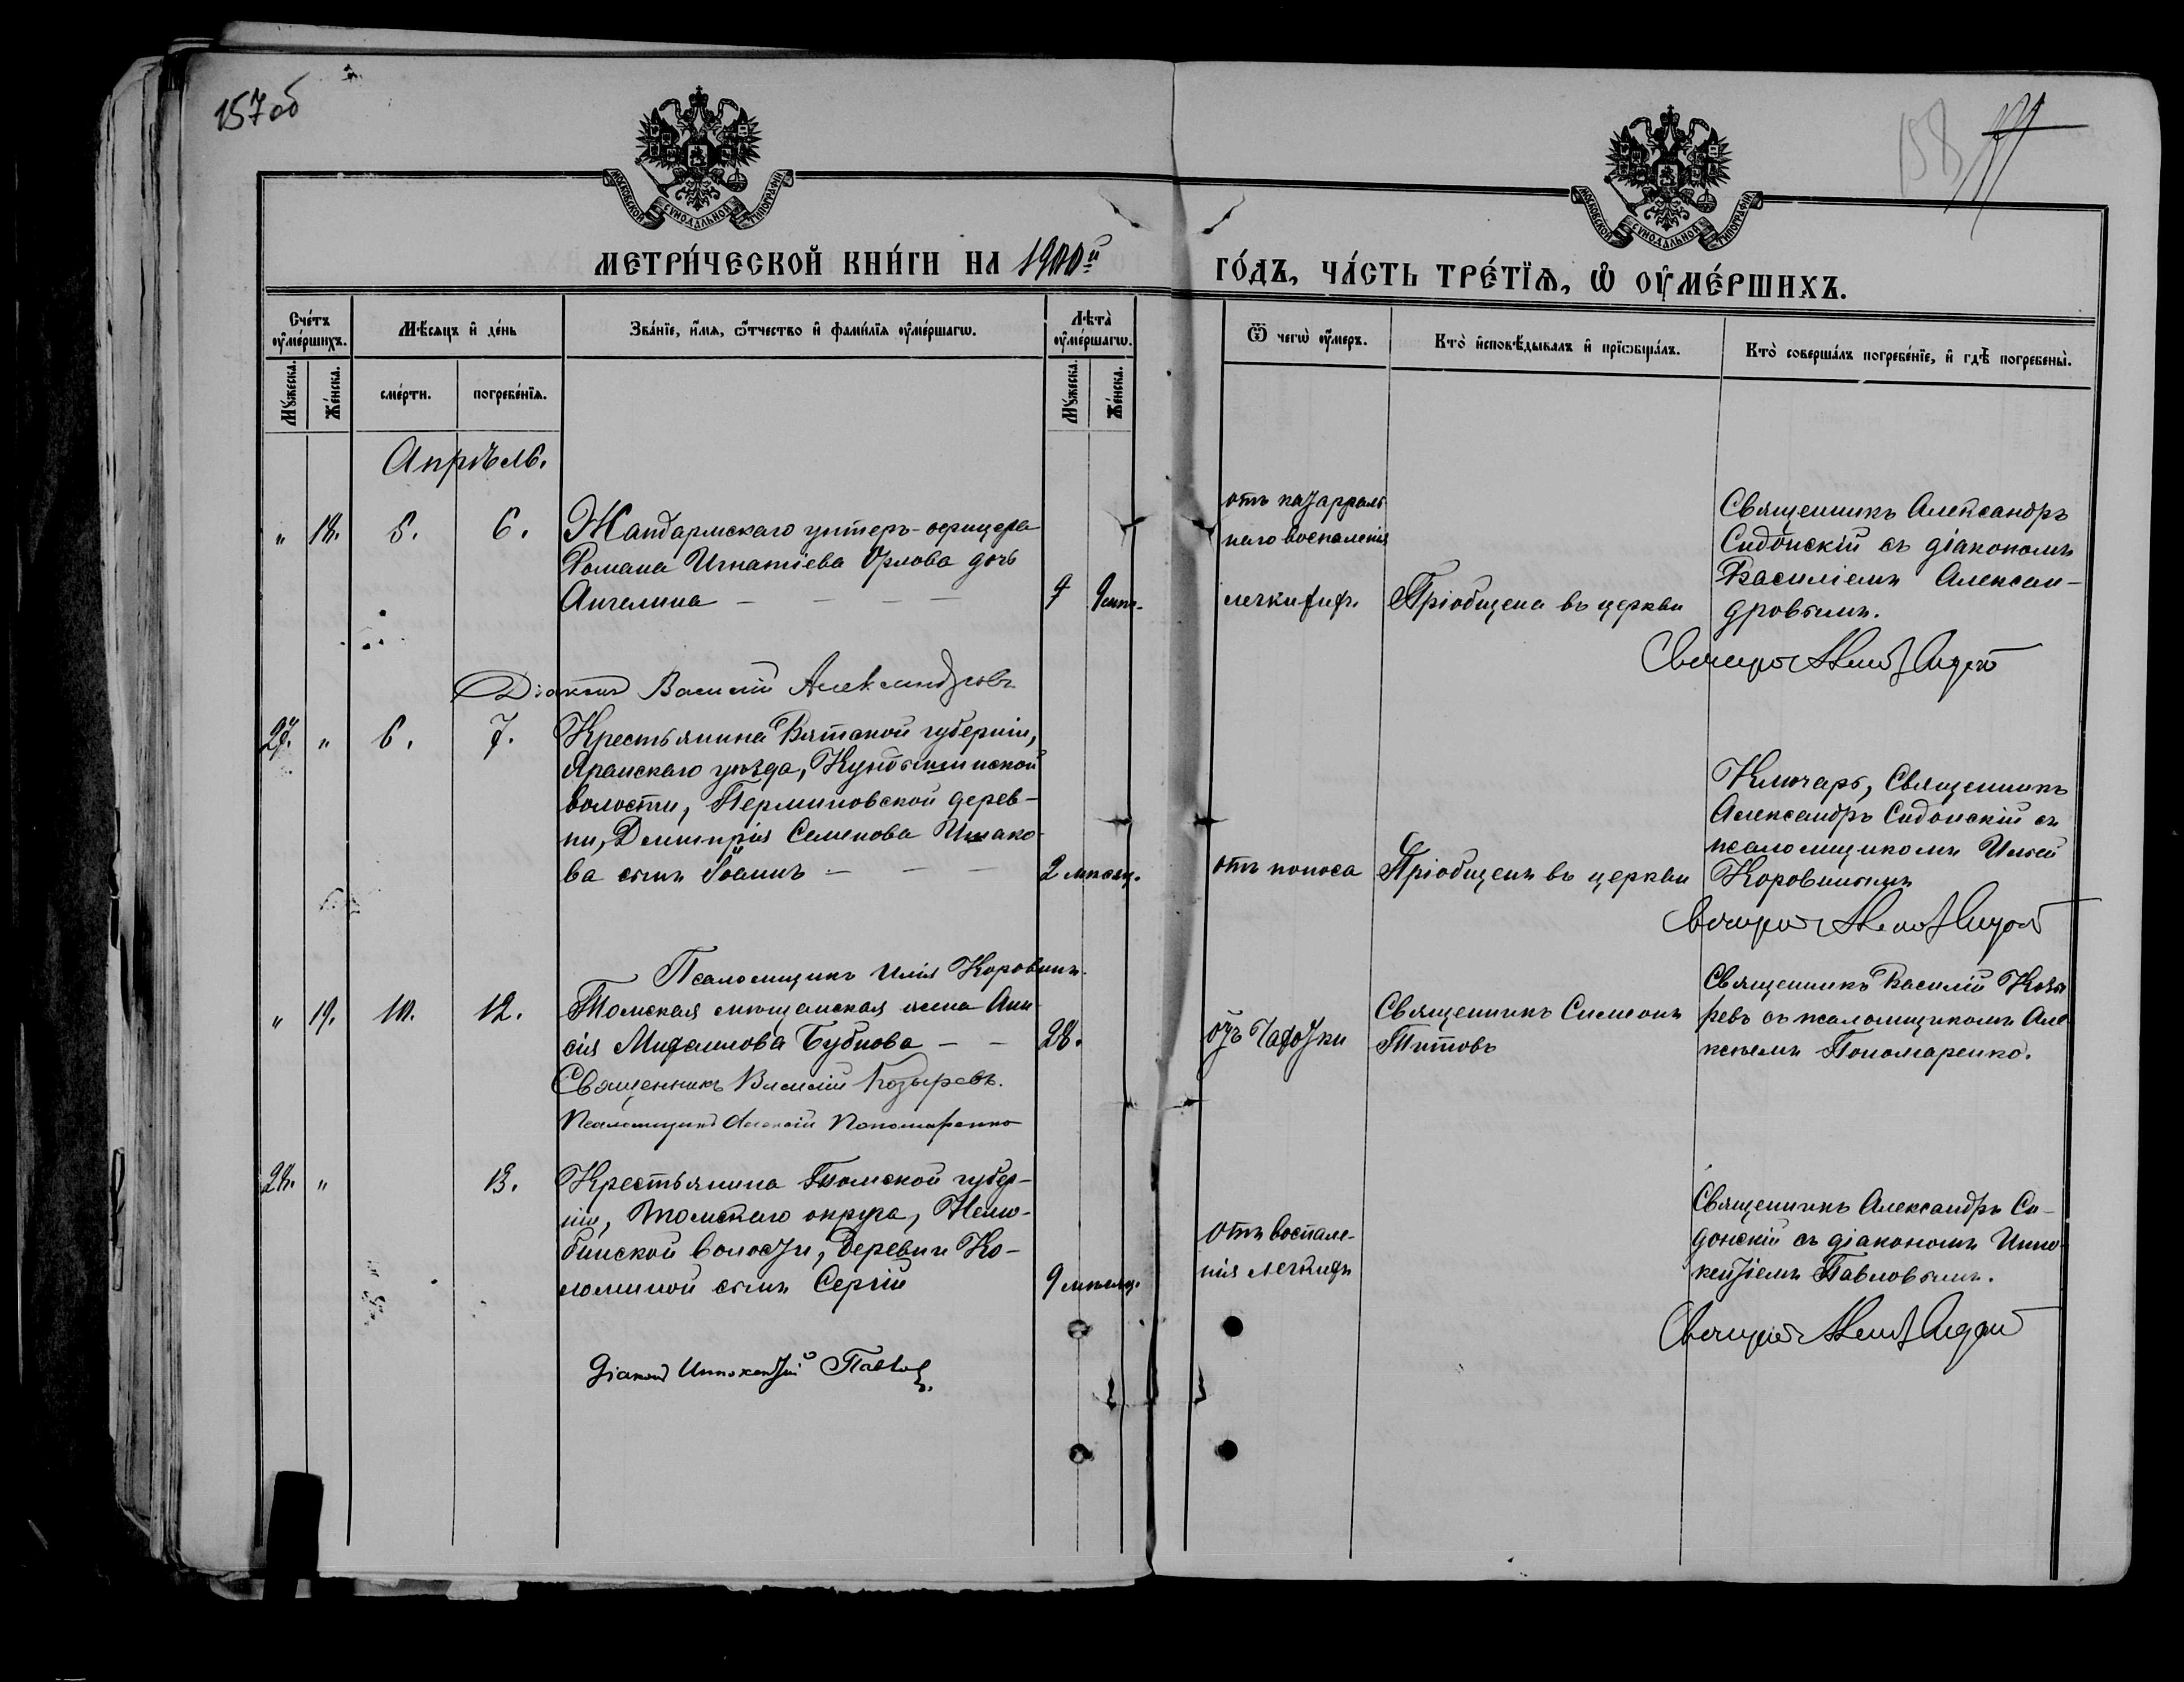 157 об
158
МОСКОВСКОЙ СУНОДАЛЬНОЙ ТИПОГРАФІИ
МОСКОВСКОЙ СУНОДАЛЬНОЙ ТИПОГРАФІИ
МЕТРИ́ЧЕСКОЙ КНИ́ГИ НА 1900й
ГО́ДЪ, ЧА́СТЬ ТРЕ́ТЇѦ, Ѽ ОУ҆МЕ́РШИХЪ.
Сче́тъ оу҆ме́ршихъ.
Мѣ́сяцъ и҆ де́нь
Зва́нїе, и҆́мѧ, ѻ҆́тчество и҆ фами́лїѧ оу҆ме́ршагѡ.
Лѣта̀ оу҆ме́ршагѡ.
Ѿ чегѡ̀ оу҆́меръ.
Кто̀ и҆сповѣ́дывалъ и҆ прїѡбща́лъ.
Кто̀ соверша́лъ погребе́нїе, и҆ гдѣ̀ погребены̀.
Му́жеска.
Же́нска.
сме́рти.
погребе́нїѧ.
Му́жеска.
Же́нска.
Апрѣль.
„ 18. 5. 6. Жандармскаго унтеръ-офицера
Романа Игнатіева Орлова дочь
Ангелина — — — —
отъ катарраль
наго воспаленія
легкихъ.
Пріобщена въ церкви
Священникъ Александръ
Сидонскій съ діакономъ
Василіемъ Алексан-
дровымъ.
Діаконъ Василій Александровъ
27. „ 6. 7. Крестьянина Вятской губерніи,
Яранскаго уѣзда,
волости, Перминовской дерев-
ни, Димитрія Семенова Ишако-
ва сынъ Іоаннъ — — —
2 мѣсяц.
отъ поноса
Пріобщенъ въ церкви
Ключарь, Священникъ
Александръ Сидонскій съ
псаломщикомъ Иліей
Коровинымъ
Псаломщикъ Илія Коровинъ.
„ 19. 10. 12. Томская мѣщанская жена Ани-
сія Михаилова Бубнова — — 28.
отъ чахотки
Священникъ Симеонъ
Титовъ
Священникъ Василій Козы
ревъ съ псаломщикомъ Але
ксѣемъ Пономаренко.
Священникъ Василій Козыревъ.
Псаломщикъ Алексій Пономаренко
28. „ 13. Крестьянина Томской губер-
ніи, Томскаго округа, Нелю-
бинской волости, деревни Ко-
ломиной сынъ Сергій
9 мѣсяц.
отъ воспале-
нія легкихъ
Священникъ Александръ Си-
донскій съ діакономъ Инно-
кентіемъ Павловымъ.
Діаконъ Иннокентій Павловъ.